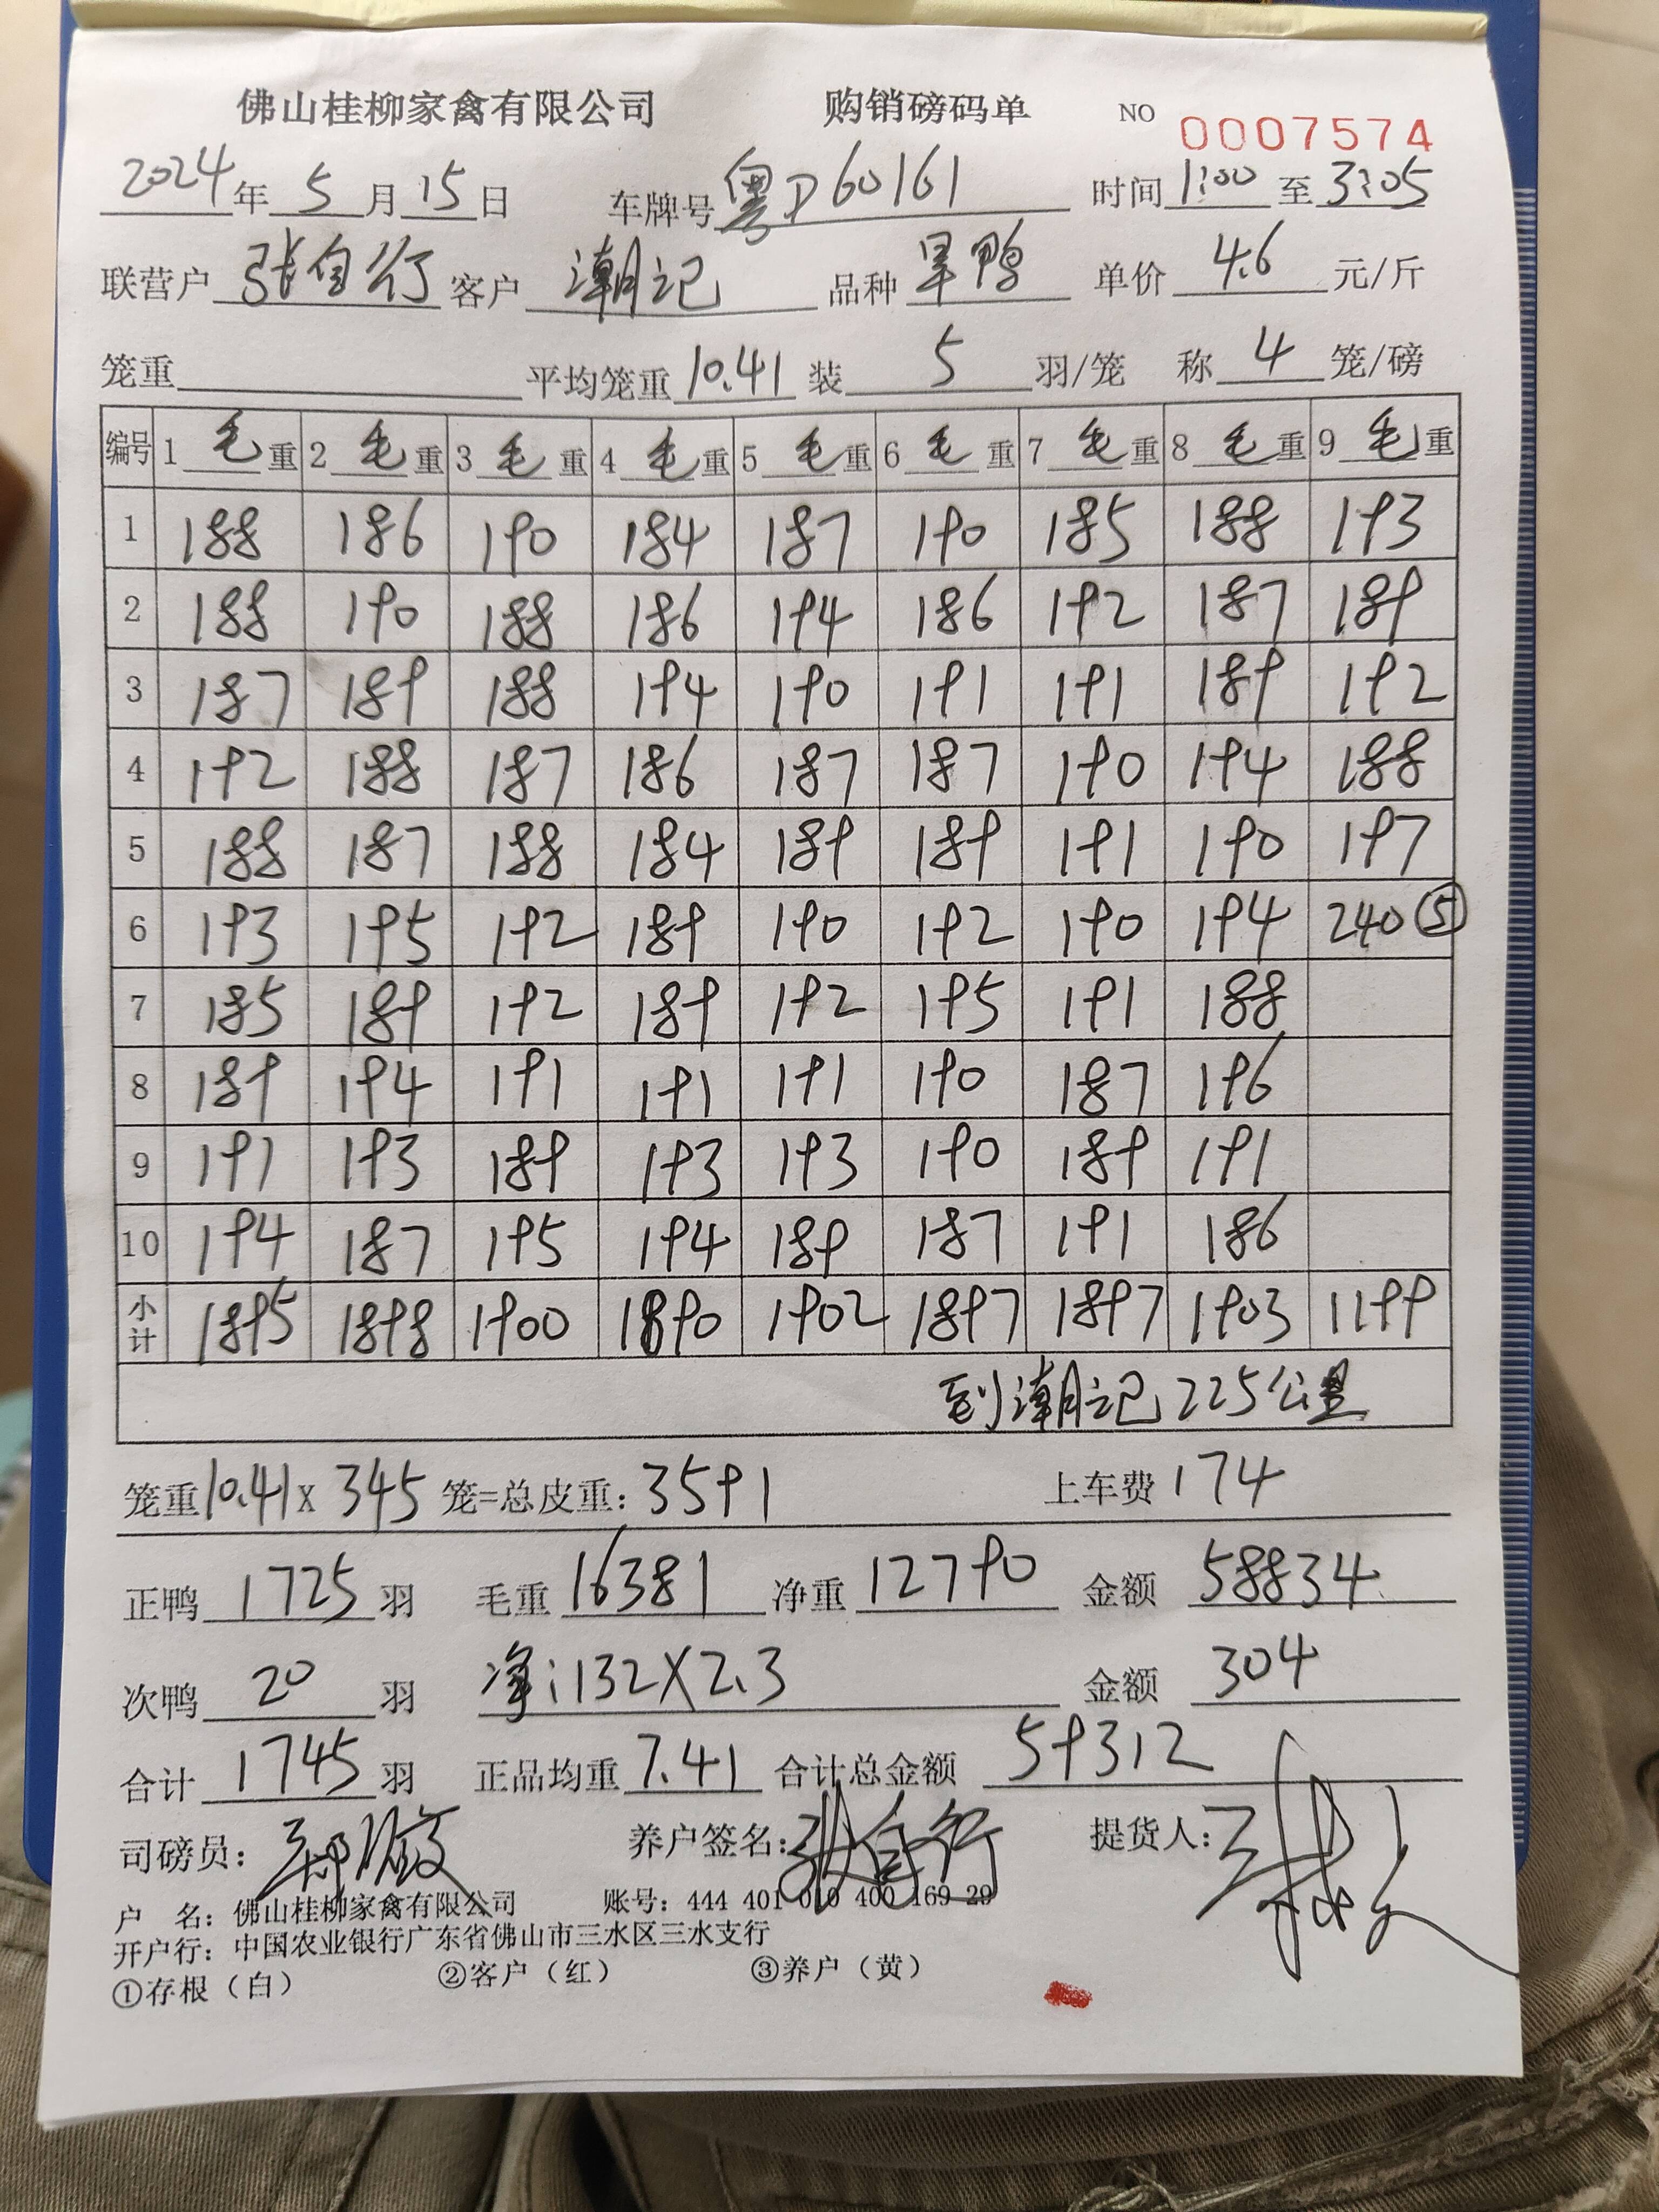 佛山桂柳家禽有限公司 购销磅码单 NO 0007574
2024年 5月15日 车牌号粤D60161 时间1:00至3:05
联营户 张自行 客户 潮记 品种 旱鸭 单价 4.6 元/斤
笼重 平均笼重10.41 装 5 羽/笼 称 4 笼/磅
编号 1 毛重 2 毛重 3 毛重 4 毛重 5 毛重 6 毛重 7 毛重 8 毛重 9 毛重
1 188 186 190 184 187 190 185 188 193
2 188 190 188 186 194 186 192 187 189
3 187 189 188 194 190 191 191 189 192
4 192 188 187 186 187 187 190 194 188
5 188 187 188 184 189 189 191 190 197
6 193 195 192 189 190 192 190 194 240⑤
7 185 189 192 189 192 195 191 188
8 189 194 191 191 191 190 187 196
9 191 193 189 193 193 190 189 191
10 194 187 195 194 189 187 191 186
小计 1895 1898 1900 1890 1902 1897 1897 1903 1199
到潮记225公里
笼重10.41x 345 笼=总皮重: 3591 上车费 174
正鸭 1725 羽 毛重 16381 净重 12790 金额 58834
次鸭 20 羽 净:132X2.3 金额 304
合计 1745 羽 正品均重 7.41 合计总金额 59312
司磅员: 养户签名:张自行 提货人:
户 名: 佛山桂柳家禽有限公司 账号: 444 401 010 400 169 29
开户行: 中国农业银行广东省佛山市三水区三水支行
①存根（白） ②客户（红） ③养户（黄）